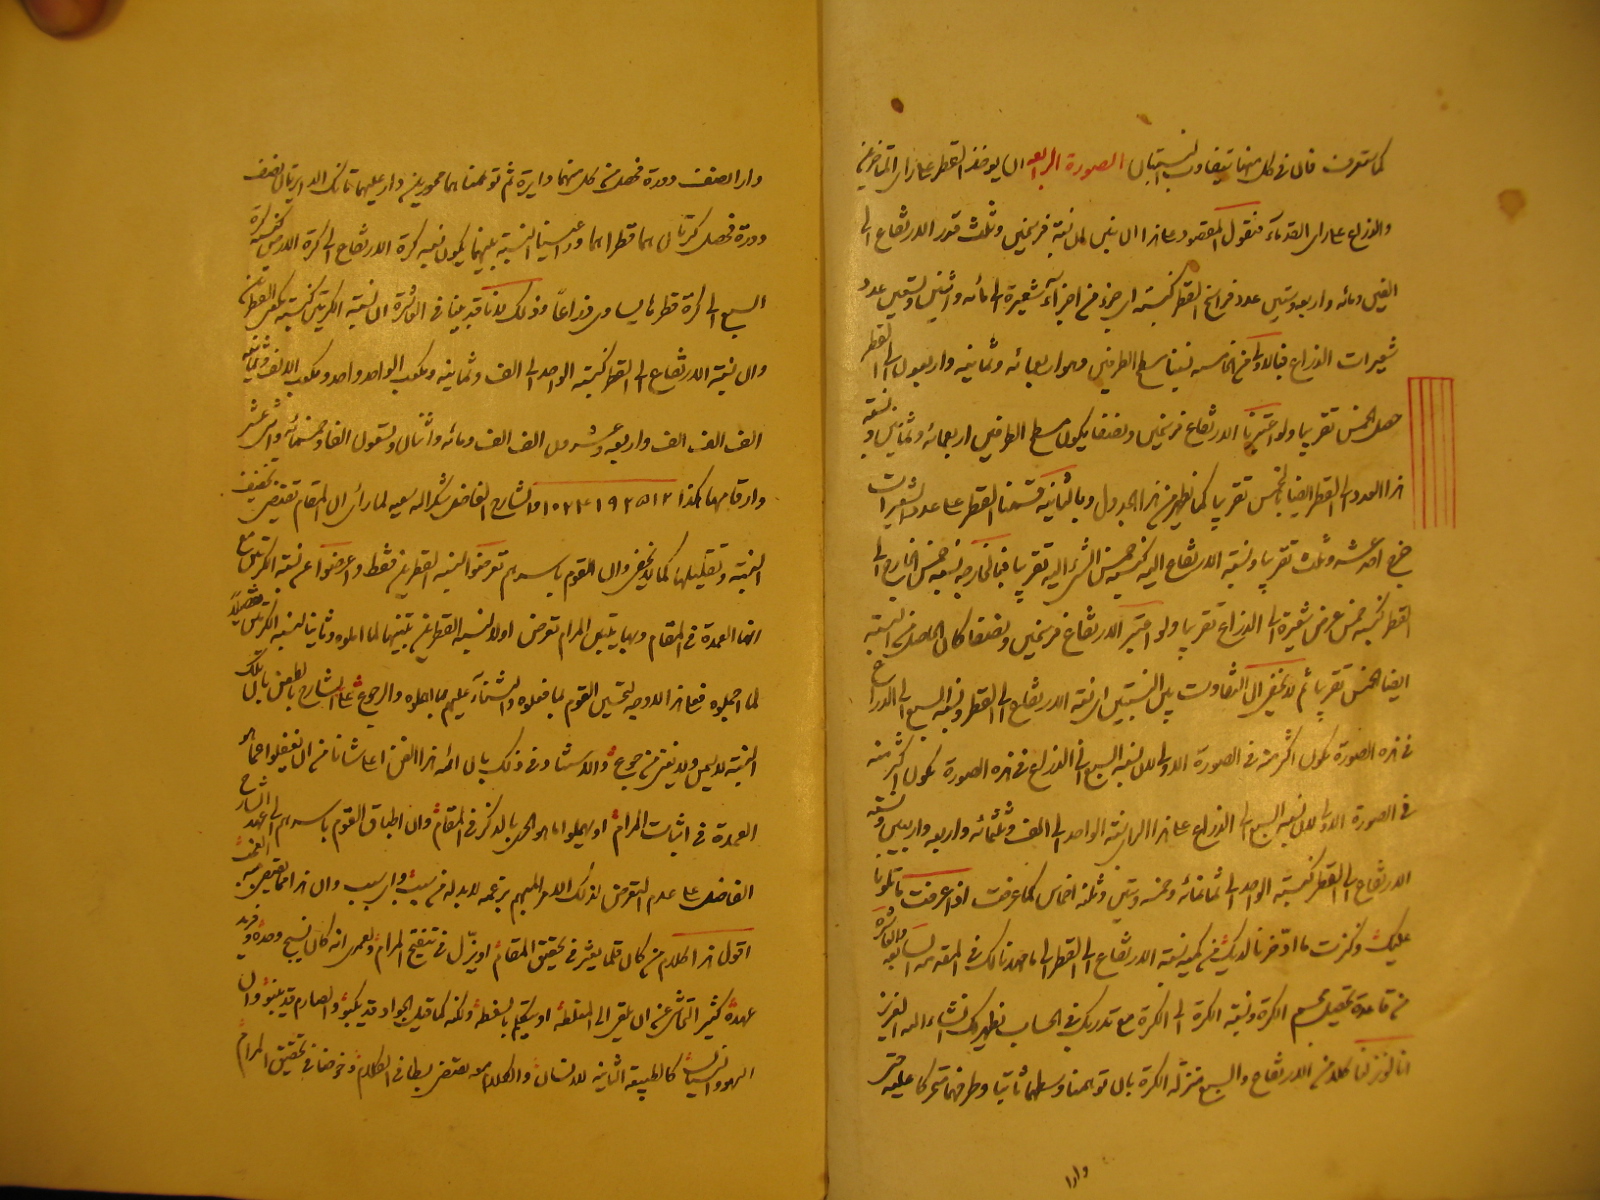 كما ستعرف فان في كل منهما تتفاوت النسبتان الصورة الرابعة ان يوخذ القطر على راى المتاخرين
والذراع على راى القدماء فنقول المقصود على هذا ان نبين ان نسبة فرسخين وثلث قدر الارتفاع الى
الفين ومائة واربعة وستين عدد فراسخ القطر كنسبة اى جزء من اجزاء شعيرة الى مائة واثنين وتسعين عدد
شعيرات الذراع فبالاولى من الخامسة نسبنا مسطح الطرفين وهو اربعمائة وثمانية واربعون الى القطر
حصل الخمس تقريبا ولو اعتبرنا الارتفاع فرسخين ونصفا يكون مسطح الطرفين اربعمائة وثمانين ونسبة
هذا العدد الى القطر ايضا بالخمس تقريبا كما يظهر من هذا الجدول وبالثانية قسمنا القطر على عدد الشعيرات
خرج احد عشر وثلث تقريبا ونسبة الارتفاع اليه كنسبة خمس الشئ اليه تقريبا فبالخارجة نسبة خمس الخارج الى
القطر كنسبة خمس عرض شعيرة الى الذراع تقريبا ولو اعتبر الارتفاع فرسخين ونصفا كان الحاصل من النسبة
ايضا الخمس تقريبا ثم لا يخفى ان التفاوت بين النسبتين اى نسبة الارتفاع الى القطر ونسبة السبع الى الذراع
في هذه الصورة يكون اكثر منه في الصورة الاولى لان نسبة السبع الى الذراع في هذه الصورة يكون اكثر منه
في الصورة الاولى لان نسبة السبع الى الذراع على هذا الراى نسبة الواحد الى الف وثلثمائة واربعة واربعين ونسبة
الارتفاع الى القطر كنسبة الواحد الى ثمانمائة وخمسة وستين وثلثة اخماس كما عرفت اذا عرفت ما تلونا
عليك وكنزت ما ادخرنا لديك في كمية نسبة الارتفاع الى القطر الى ما مهدنا لك في المقدمة السابعة والعاشرة
من قاعدة تحصيل جسم الكرة ونسبة الكرة الى الكرة مع تدربك في الحساب نظهر لك انشاء الله العزيز
انا لو نزلنا كلا من الارتفاع والسبع منزلة الكرة بان توهمنا وسطهما ثابتا وطرفهما متحركا عليه حتى
دارا
دارا نصف دورة فحصل من كل منهما دايرة ثم توهمناهما محورين ودار عليهما تانك الدايرتان نصف
دورة فحصل كرتان هما قطراهما وراعينا النسبة بينهما يكون نسبة كرة الارتفاع الى كرة الارض كنسبة كرة
السبع الى كرة قطرها يساوى ذراعا وذلك لانا قد بينا في العاشرة ان نسبة الكرتين كنسبة مكعبى القطرين
وان نسبة الارتفاع الى القطر كنسبة الواحد الى الف وثمانية ومكعب الواحد واحد ومكعب الالف وثمانية
الف الف الف واربعة وعشرون الف الف ومائة واثنان وتسعون الفا وخمسمائة واثنى عشر
وارقامها هكذا ١٠٢٤١٩٢٥١٢ والشارح الفاضل شكر الله سعيه لما راى ان المقام يقتضى تخفيف
النسبة وتقليلها كما لا يخفى وان القوم باسرهم تعرضوا لنسبة القطرين فقط واعرضوا عن نسبة الكرتين مع
انها العمدة في المقام وبها يتبين المرام تعرض اولا لنسبة القطرين تبيينها لما اهملوه وثانيا لنسبة الكرتين تفصيلا
لما اجملوه فعلى هذا لا وجه لتحسين القوم بما فعلوه والشناء عليهم بما اهملوه والرجوع على الشارح بالطعن بان تلك
النسبة لا يسمن ولا يغنى من جوع والاستشهاد في ذلك بان ائمة هذا الفن اعلى شانا من ان يغفلوا عما هو
العمدة في اثبات المرام او يهملوا ما هو الحرى بالذكر في المقام وان اطباق القوم باسرهم الى عهد الشارح
الفاضل على عدم التعرض لذلك الامر المبهم بزعمه لا بد له من سبب واى سبب وان هذا مما يقتضى منه العجب
اقول هذا الكلام من كان قلما يعثر في تحقيق المقام او يزل في تنقيح المرام ولعمرى انه كان نسيج وحده وفريد
عهده كثير التحاشى عن ان يلقى الى المغلطة او يتكلم بالسفسطة ولكنه كما قيل الجواد قد يكبو والصارم قد ينبو وان
السهو والنسيان كالطبيعة الثانية للانسان والكلام معه يقتضى بسطا في الكلام وخوضا في تحقيق المرام